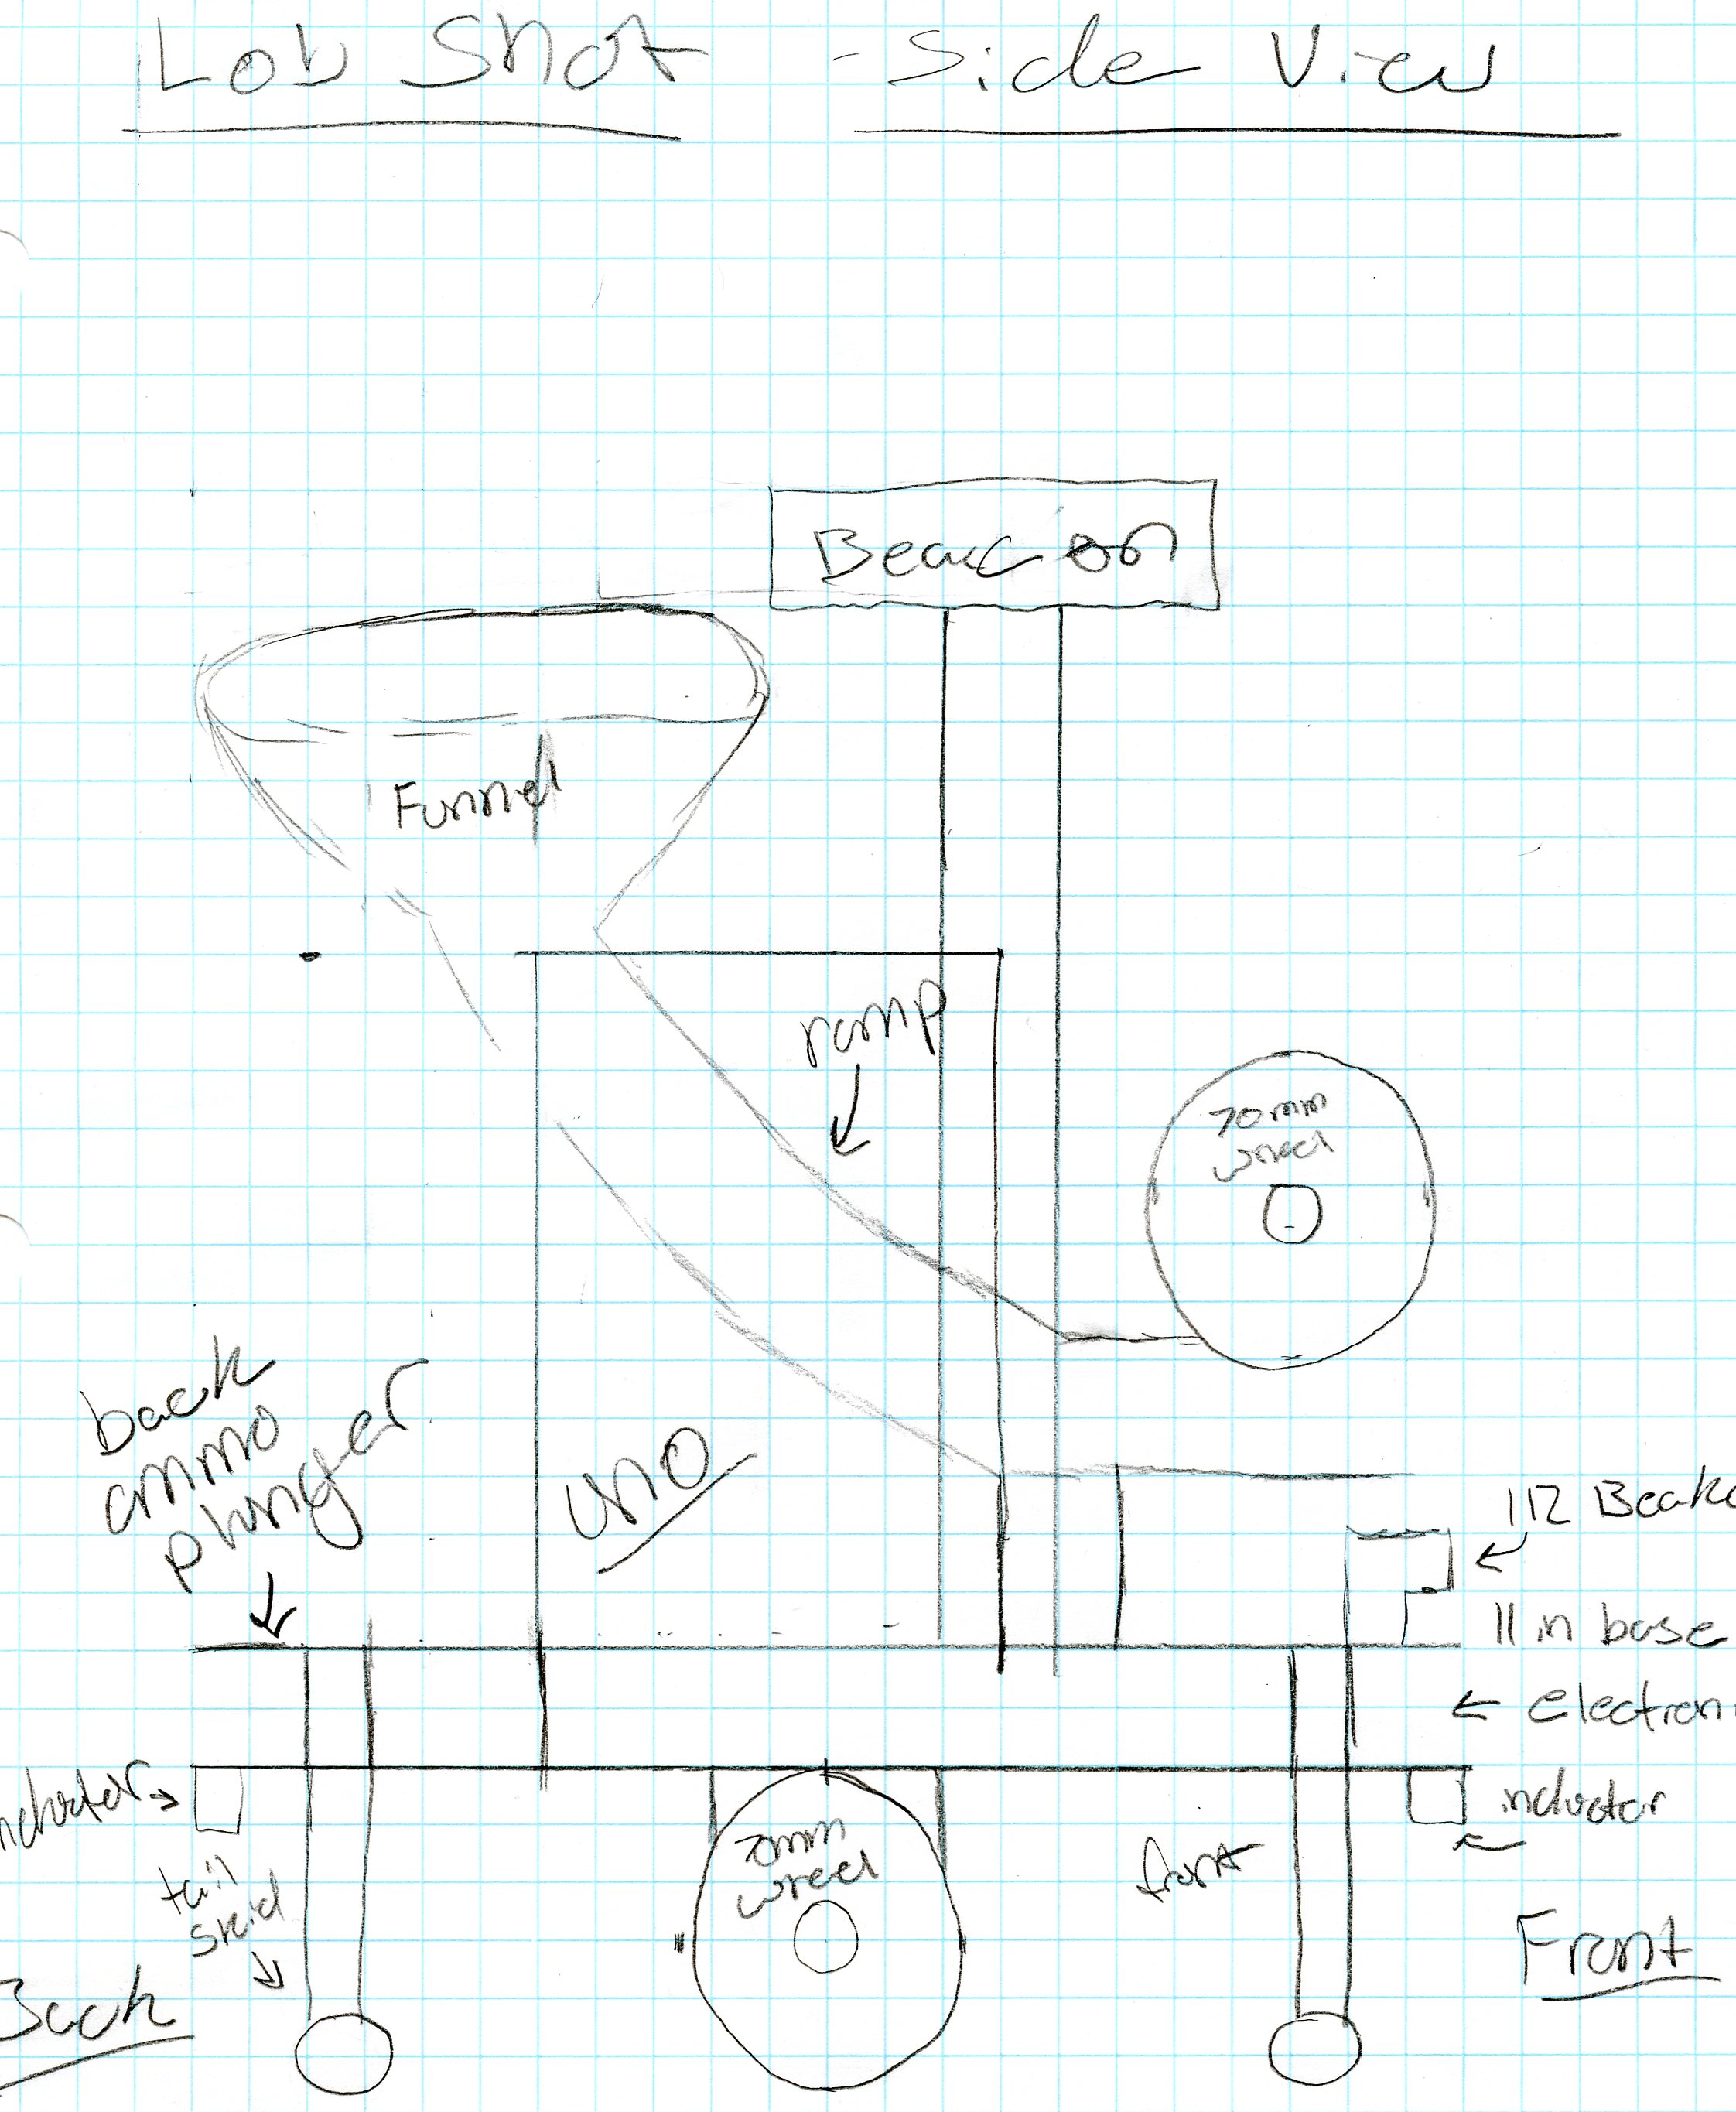 Lob Shot - Side View
Beacon
Funnel
ramp
70mm
wheel
back
ammo
plunger
UNO
IR Beac
11 in base
electron
inductor
inductor
tail
skid
70mm
wheel
front
Front
Back